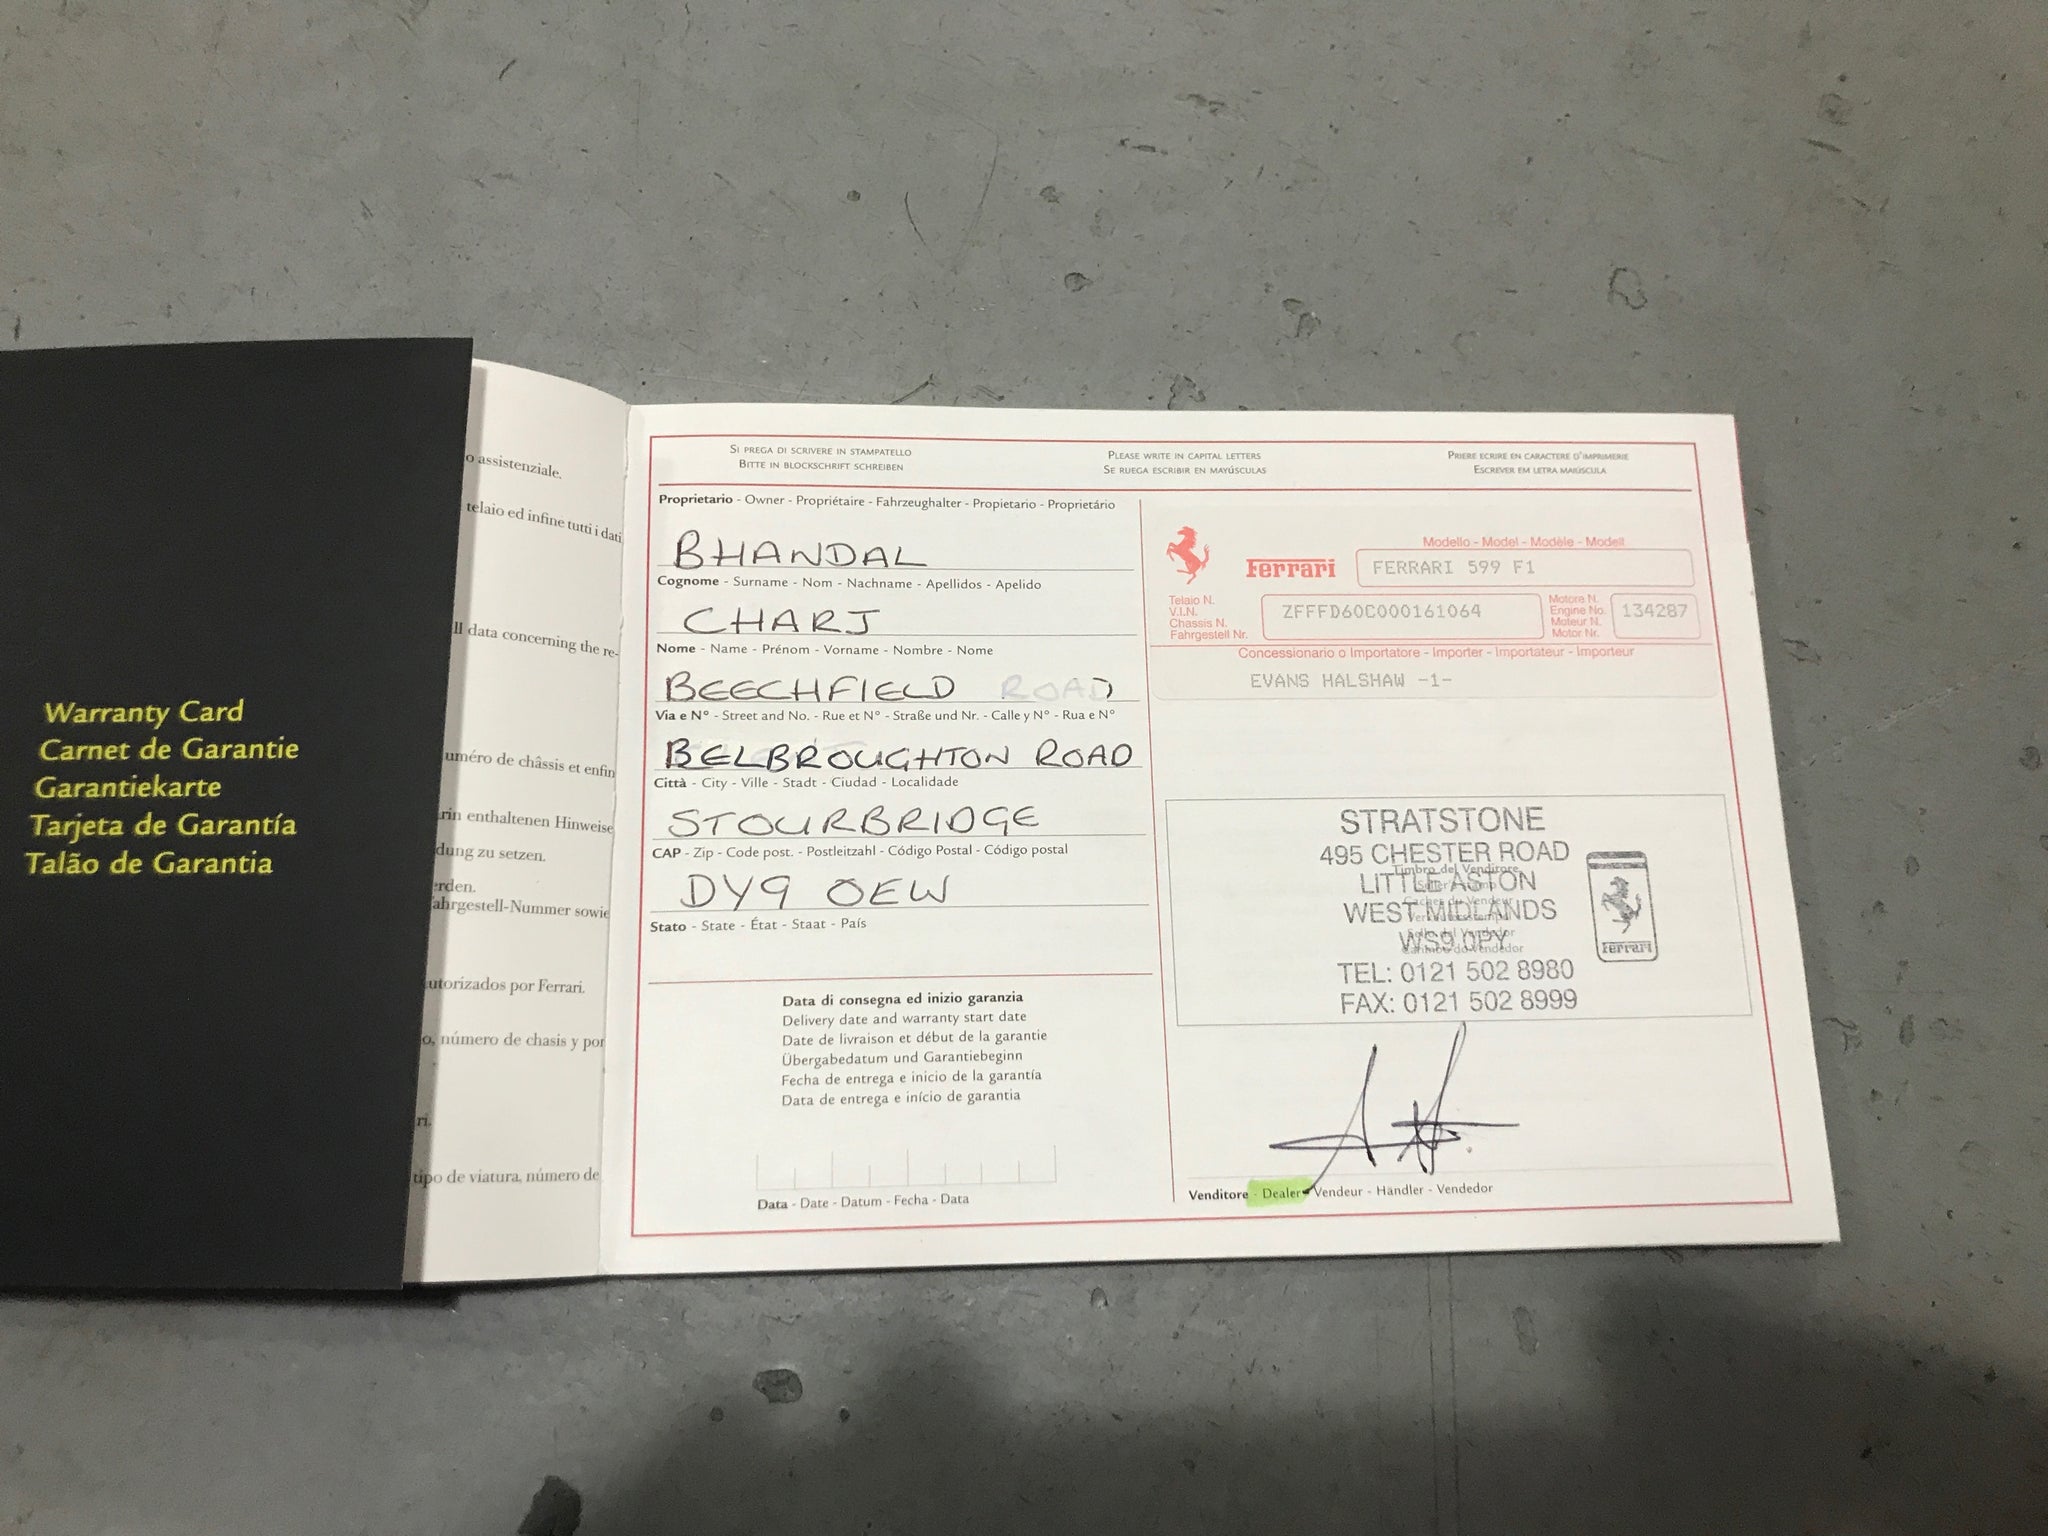 Warranty Card
Carnet de Garantie
Garantiekarte
Tarjeta de Garantía
Talão de Garantia
o assistenziale.
telaio ed infine tutti i dati
ll data concerning the re-
uméro de châssis et enfin
rin enthaltenen Hinweise
dung zu setzen.
erden.
ahrgestell-Nummer sowie
utorizados por Ferrari.
o, número de chasis y por
ri.
tipo de viatura, número de
SI PREGA DI SCRIVERE IN STAMPATELLO
BITTE IN BLOCKSCHRIFT SCHREIBEN
PLEASE WRITE IN CAPITAL LETTERS
SE RUEGA ESCRIBIR EN MAYÚSCULAS
PRIERE ECRIRE EN CARACTERE D'IMPRIMERIE
ESCREVER EM LETRA MAIÚSCULA
Proprietario - Owner - Propriétaire - Fahrzeughalter - Propietario - Proprietário
BHANDAL
Cognome - Surname - Nom - Nachname - Apellidos - Apelido
CHARJ
Nome - Name - Prénom - Vorname - Nombre - Nome
BEECHFIELD ROAD
Via e N° - Street and No. - Rue et N° - Straße und Nr. - Calle y N° - Rua e N°
BELBROUGHTON ROAD
Città - City - Ville - Stadt - Ciudad - Localidade
STOURBRIDGE
CAP - Zip - Code post. - Postleitzahl - Código Postal - Código postal
DY9 0EW
Stato - State - État - Staat - País
Data di consegna ed inizio garanzia
Delivery date and warranty start date
Date de livraison et début de la garantie
Übergabedatum und Garantiebeginn
Fecha de entrega e inicio de la garantía
Data de entrega e início de garantia
Data - Date - Datum - Fecha - Data
Modello - Model - Modèle - Modell
Ferrari FERRARI 599 F1
Telaio N.
V.I.N.
Chassis N.
Fahrgestell Nr.
ZFFFD60C000161064
Motore N.
Engine No.
Moteur N.
Motor Nr.
134287
Concessionario o Importatore - Importer - Importateur - Importeur
EVANS HALSHAW -1-
STRATSTONE
495 CHESTER ROAD
Timbro del Venditore
LITTLE ASTON
WEST MIDLANDS
WS9 0PY
TEL: 0121 502 8980
FAX: 0121 502 8999
Ferrari
Venditore - Dealer - Vendeur - Händler - Vendedor